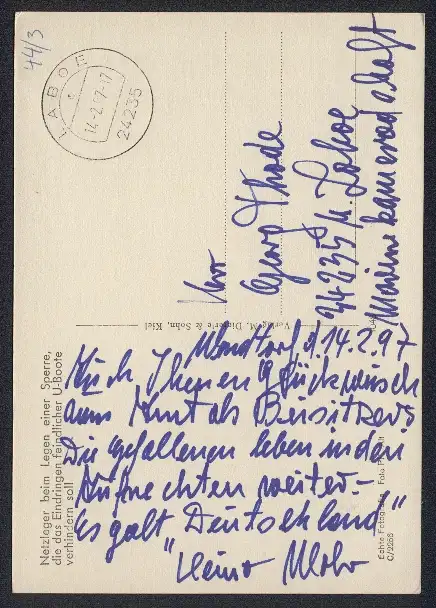 44/3
LABOE
14.2.97-17
24235
Herr
Georg Thode
24235 Laboe
Marinekameradschaft
Verlag M. Dieterle & Sohn, Kiel
Netzleger beim Legen einer Sperre,
die das Eindringen feindlicher U-Boote
verhindern soll
d. 14.2.97
Auch Ihnen Glückwunsch
zum Amt als Beisitzer.
Die Gefallenen leben in den
Aufrechten weiter.-
"Es galt Deutschland"
Heino
Echte Fotografie
C/2256